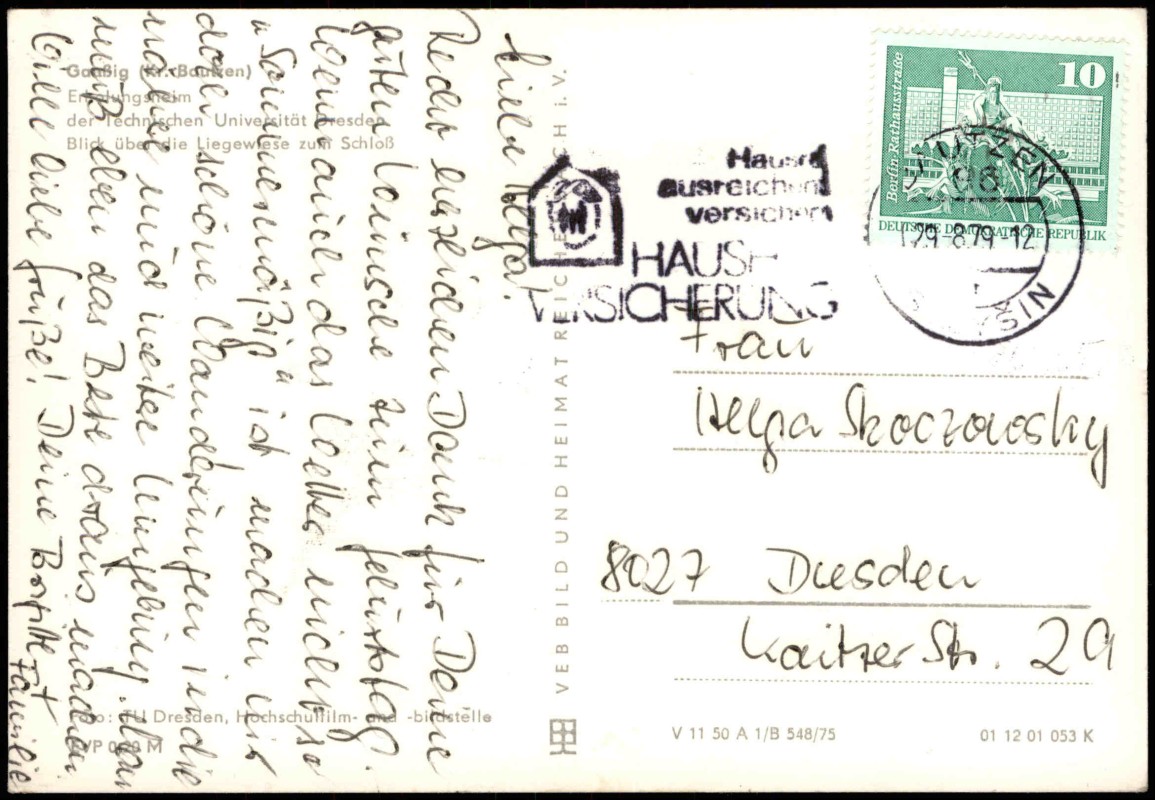 Gaußig (Kr. Bautzen)
Erholungsheim
der Technischen Universität Dresden
Blick über die Liegewiese zum Schloß
Liebe Helga!
Recht herzlichen Dank für Deine
guten Wünsche zum Geburtstag.
Wenn auch das Wetter nicht so
"sommermäßig" ist machen wir
doch schöne Wanderungen in die
nähere und weitere Umgebung. Man
muß eben das Beste draus machen.
Viele liebe Grüße! Deine Brigitte +
Familie
Foto: TU Dresden, Hochschulfilm- und -bildstelle
VEB BILD UND HEIMAT REICHENBACH i. V.
10
Berlin-Rathausstraße
DEUTSCHE DEMOKRATISCHE REPUBLIK
29-8.79-12
ausreichend
versichert
HAUSH
VERSICHERUNG
Frau
Helga Skoczowsky
8027 Dresden
Kaitzer Str. 29
V 11 50 A 1/B 548/75
01 12 01 053 K